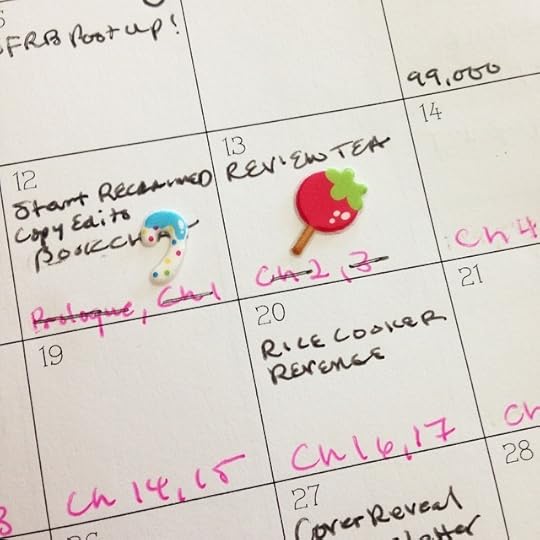 FRB Post up!
99,000
12
Start RECLAIMED
Copy Edits
BOOKCH
Prologue, Ch 1
13
REVIEW TEA
Ch 2, 3
14
Ch 4
19
Ch 14, 15
20
RICE COOKER
REVENGE
Ch 16, 17
21
Ch
27
Cover Reveal
28